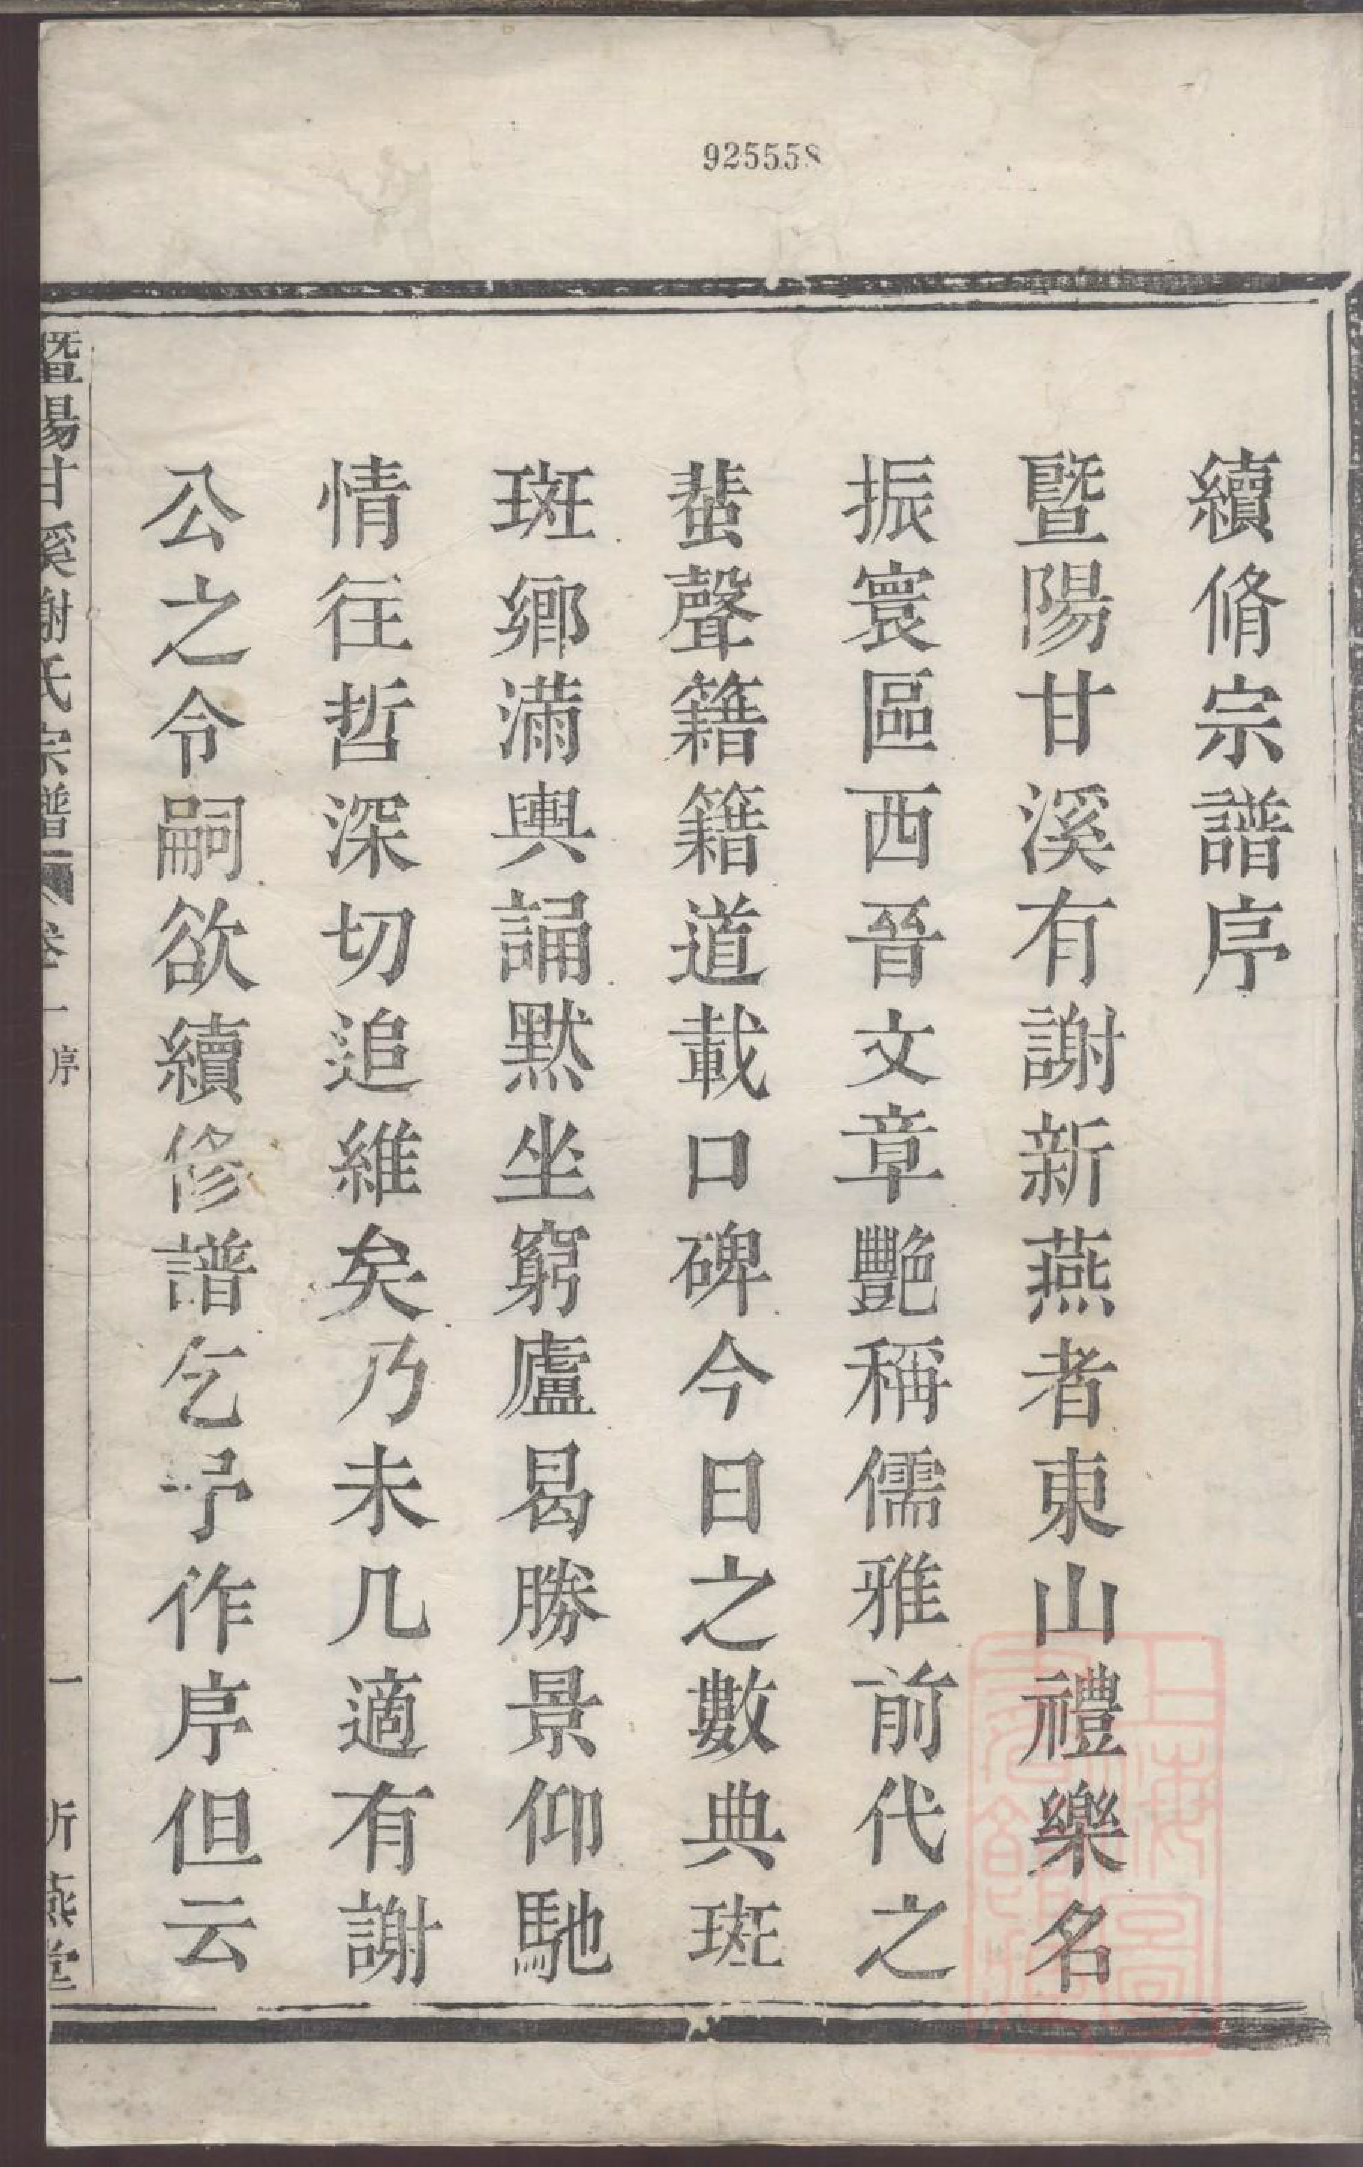 925558
續脩宗譜序
暨陽甘溪有謝新燕者東山禮樂名
振寰區西晉文章艷稱儒雅前代之
蜚聲籍籍道載口碑今日之數典斑
斑鄉滿輿誦默坐窮廬曷勝景仰馳
情往哲深切追維矣乃未几適有謝
公之令嗣欲續修譜乞予作序但云
暨陽甘溪謝氏宗譜 卷一 序 一 新燕堂
上海圖書館藏